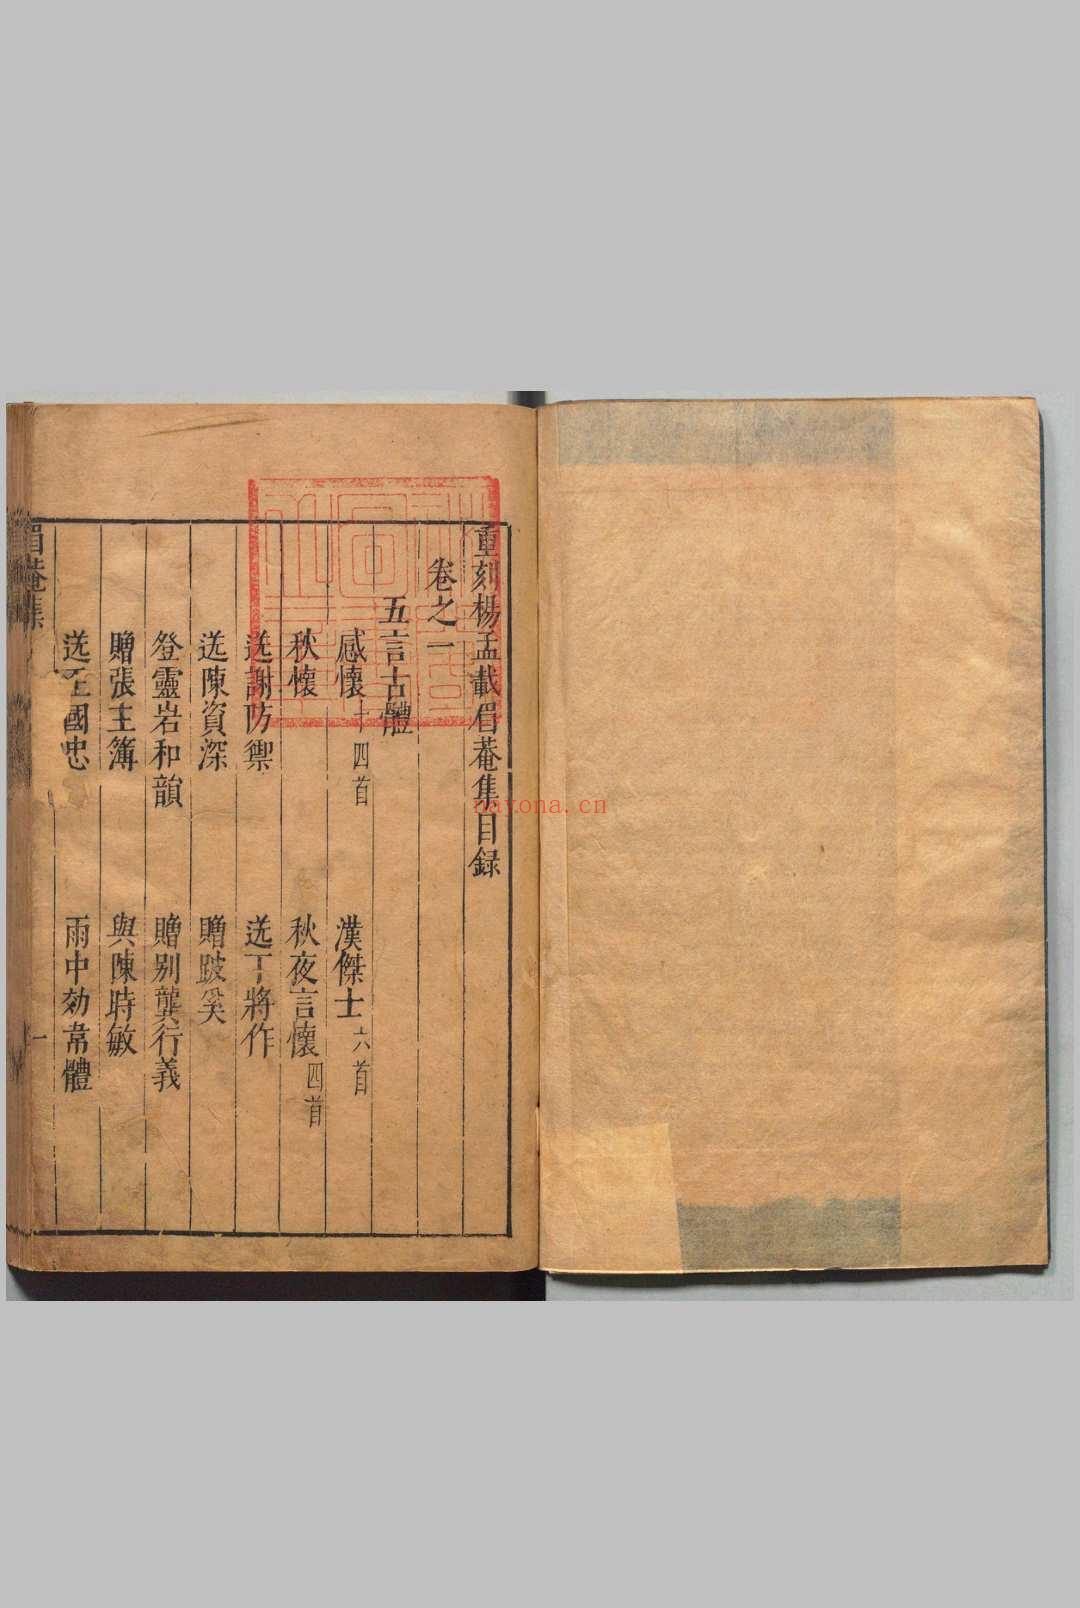 重刻楊孟載眉菴集目録
卷之一
五言古體
感懷十四首 漢傑士六首
秋懷 秋夜言懷四首
送謝防禦 送丁將作
送陳資深 贈跛奚
登靈岩和韻 贈别龔行義
贈張主簿 與陳時敏
送王國忠 雨中効韋體
眉菴集
一
nayona.cn